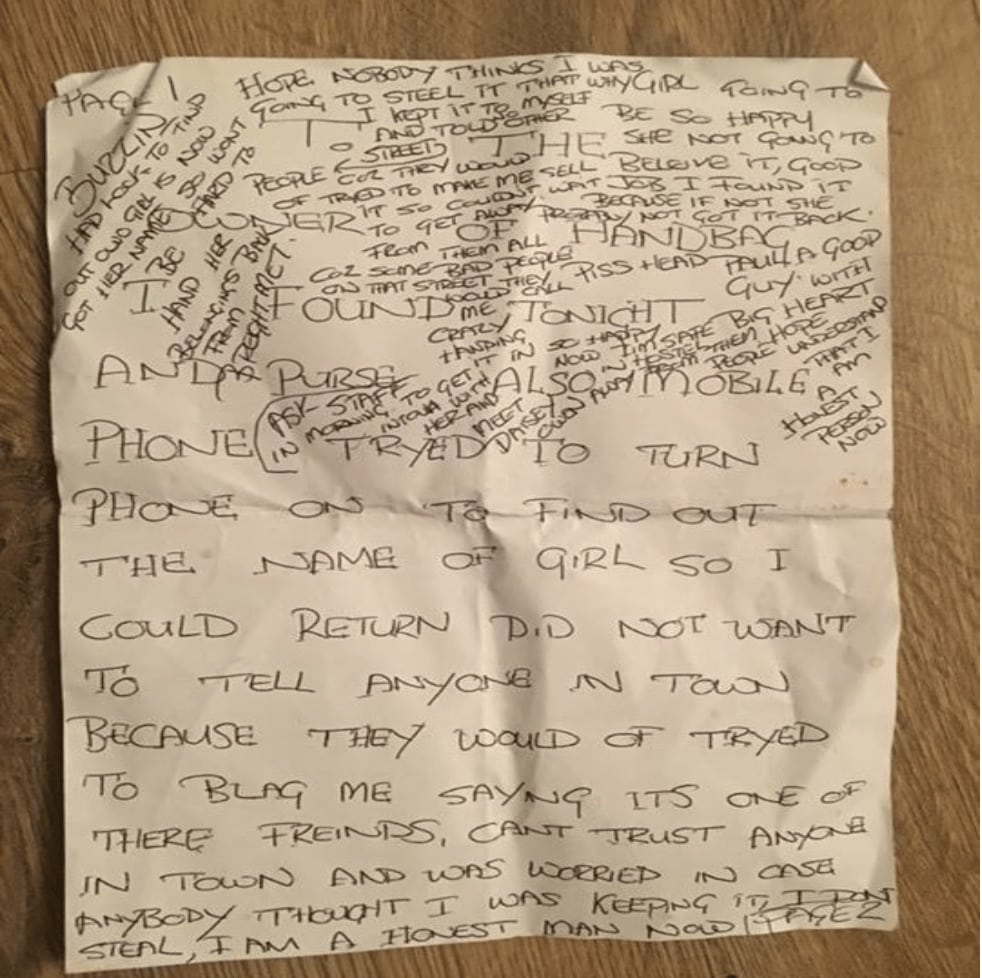 PAGE 1
HOPE NOBODY THINKS I WAS
GOING TO STEEL IT THAT WHY
I KEPT IT TO MYSELF
AND TOLD OTHER
STREET
PEOPLE COZ THEY WOULD
OF TRYED TO MAKE ME SELL
IT SO COULDNT WAT
TO GET AWAY
FROM THEM ALL
COZ SOME BAD PEOPLE
ON THAT STREET THEY
WOULD CALL
ME
CRAZY
HANDING
IT IN SO HAPPY
NOW I'M SAFE
IN HESTEL
AWAY FROM THEM HOPE
PEOPLE UNDERSTAND
THAT I
AM
A
HONEST
PERSON
NOW
GIRL GOING TO
BE SO HAPPY
SHE NOT GOING TO
BELEIVE IT, GOOD
JOB I FOUND IT
BECAUSE IF NOT SHE
NOT GOT IT BACK.
PISS HEAD PAUL A GOOD
GUY WITH
BIG HEART
BUZZIN
HAD LOOK TO FIND
OUT OWD GIRL IS NOW
GOT HER NAME SO WONT
BE HARD TO
HAND HER
BELONGINGS BACK
FROM
TO THE
OWNER OF HANDBAG
I FOUND TONIGHT
AND PURSE ALSO MOBILE
(ASK STAFF
IN MORNING TO GET
INTOUH WITH
HER AND
MEET
DAISEY
OWN
PHONE TRYED TO TURN
PHONE ON TO FIND OUT
THE NAME OF GIRL SO I
COULD RETURN DID NOT WANT
TO TELL ANYONE IN TOWN
BECAUSE THEY WOULD OF TRYED
TO BLAG ME SAYNG ITS ONE OF
THERE FREINDS, CANT TRUST ANYONE
IN TOWN AND WAS WORRIED IN CASE
ANYBODY THOUGHT I WAS KEEPING IT, I DONT
STEAL, I AM A HONEST MAN NOW PAGE 2